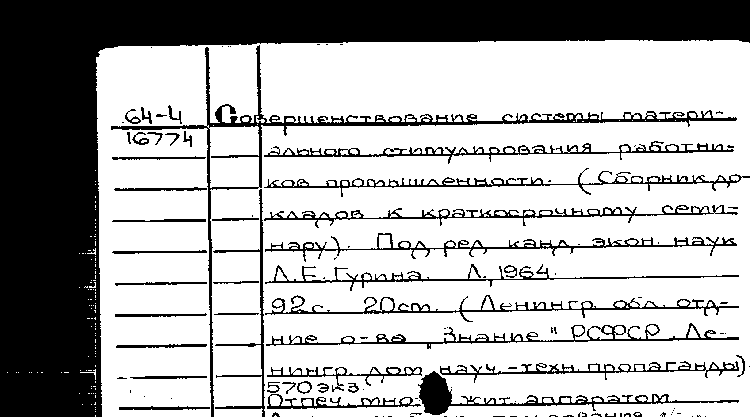 64-4
16774
Совершенствование системы матери-
ального стимулирования работни-
ков промышленности. (Сборник до-
кладов к краткосрочному семи-
нару). Под ред. канд. экон. наук
Л.Е.Гурина. Л., 1964.
92 с. 20 см. (Ленингр. обл. отд-
ние о-ва "Знание" РСФСР. Ле-
нингр. дом науч.-техн. пропаганды)
570 экз.
Отпеч. множит. аппаратом.